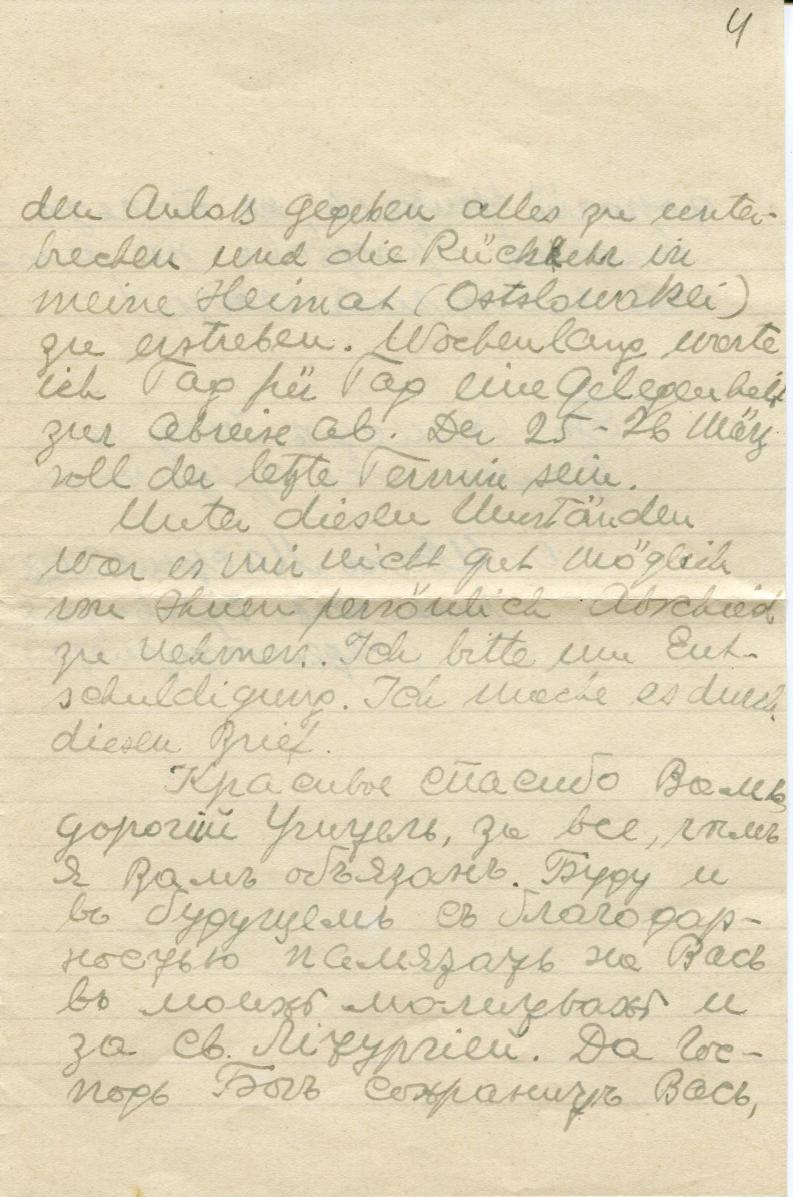 4
den Anlaß gegeben alles zu unter-
brechen und die Rückkehr in
meine Heimat (Ostslowakei)
zu erstreben. Wochenlang warte
ich Tag für Tag eine Gelegenheit
zur Abreise ab. Der 25-26 März
soll der letzte Termin sein.
Unter diesen Umständen
war es mir nicht gut möglich
von Ihnen persönlich Abschied
zu nehmen. Ich bitte um Ent-
schuldigung. Ich mache es durch
diesen Brief.
Красивое спасибо Вамъ
дорогій Учитель, за все, чѣмъ
я Вамъ объязанъ. Буду и
въ будущемъ съ благодар-
ностью памятать на Васъ
въ моихъ молитвахъ и
за св. Літургіей. Да Гос-
подь Богъ сохранитъ Васъ,